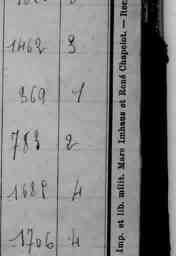 1462 3
369 1
783 2
1689 4
1706 4
Imp. et lib. milit. Marc Imhaus et René Chapelot. —